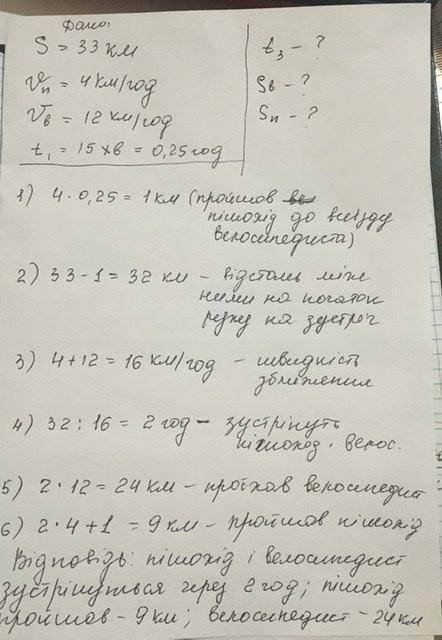 Дано:
S = 33 км
t₃ - ?
Vп = 4 км/год
Sв - ?
Vв = 12 км/год
Sп - ?
t₁ = 15 хв = 0,25 год
1) 4 · 0,25 = 1 км (пройшов
пішохід до виїзду
велосипедиста)
2) 33 - 1 = 32 км - відстань між
ними на початок
руху на зустріч
3) 4 + 12 = 16 км/год - швидкість
зближення
4) 32 : 16 = 2 год - зустрінуть
пішоход. велос.
5) 2 · 12 = 24 км - проїхав велосипедист
6) 2 · 4 + 1 = 9 км - пройшов пішохід
Відповідь: пішохід і велосипедист
зустрінуться через 2 год; пішохід
пройшов - 9 км; велосипедист - 24 км